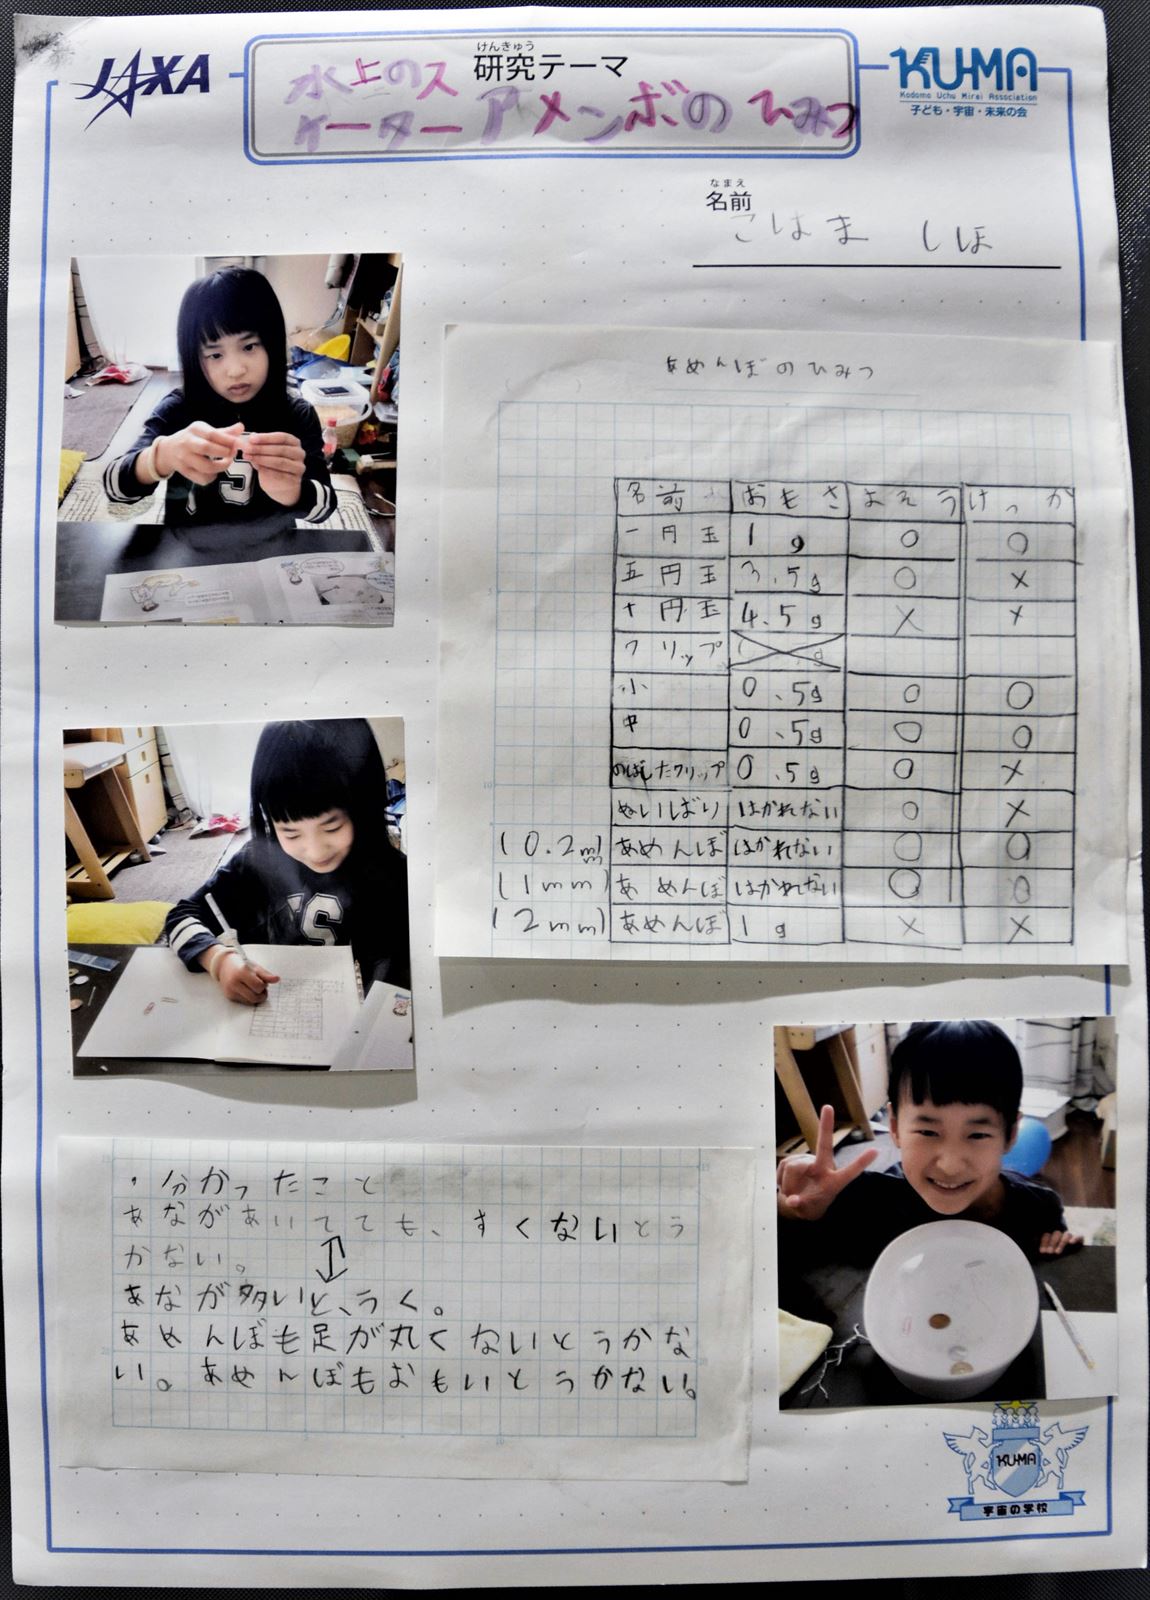 JAXA
けんきゅう
研究テーマ
水上のス
ケーターアメンボのひみつ
KU-MA
Kodomo Uchu Mirai Association
子ども・宇宙・未来の会
なまえ
名前
こはま しほ
あめんぼのひみつ
名前 おもさ よそう けっか
一円玉 1g ○ ○
五円玉 3.5g ○ ×
十円玉 4.5g × ×
クリップ
小 0.5g ○ ○
中 0.5g ○ ○
のばしたクリップ 0.5g ○ ×
ぬいばり はかれない ○ ×
(0.2mm) あめんぼ はかれない ○ ○
(1mm) あめんぼ はかれない ○ ○
(2mm) あめんぼ 1g × ×
・分かったこと
あながあいてても、すくないとう
かない。
あなが多いと、うく。
あめんぼも足が丸くないとうかな
い。あめんぼもおもいとうかない。
KU-MA
宇宙の学校